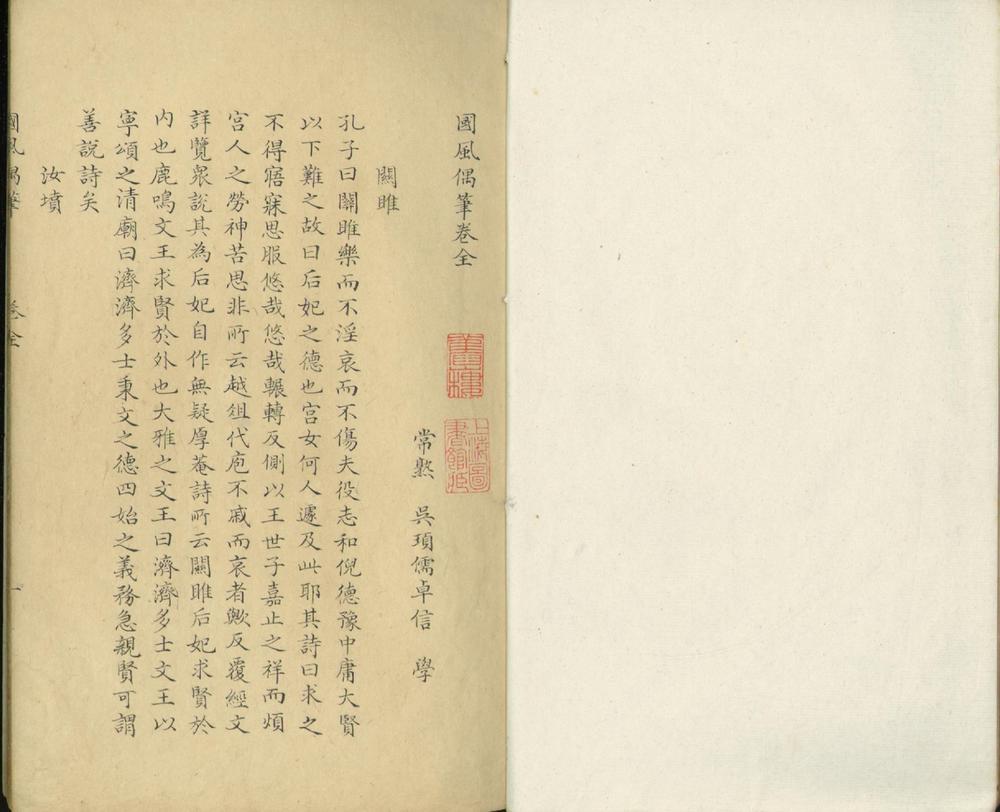 國風偶筆卷全
畫樓
上海圖書館藏
常熟　吳頊儒卓信　學
關雎
孔子曰關雎樂而不淫哀而不傷夫役志和倪德豫中庸大賢
以下難之故曰后妃之德也宫女何人遽及此耶其詩曰求之
不得寤寐思服悠哉悠哉輾轉反側以王世子嘉止之祥而煩
宫人之勞神苦思非所云越俎代庖不戚而哀者歟反覆經文
詳覽衆說其為后妃自作無疑厚菴詩所云關雎后妃求賢於
内也鹿鳴文王求賢於外也大雅之文王曰濟濟多士文王以
寧頌之清廟曰濟濟多士秉文之德四始之義務急親賢可謂
善說詩矣
汝墳
國風偶筆　卷全　一